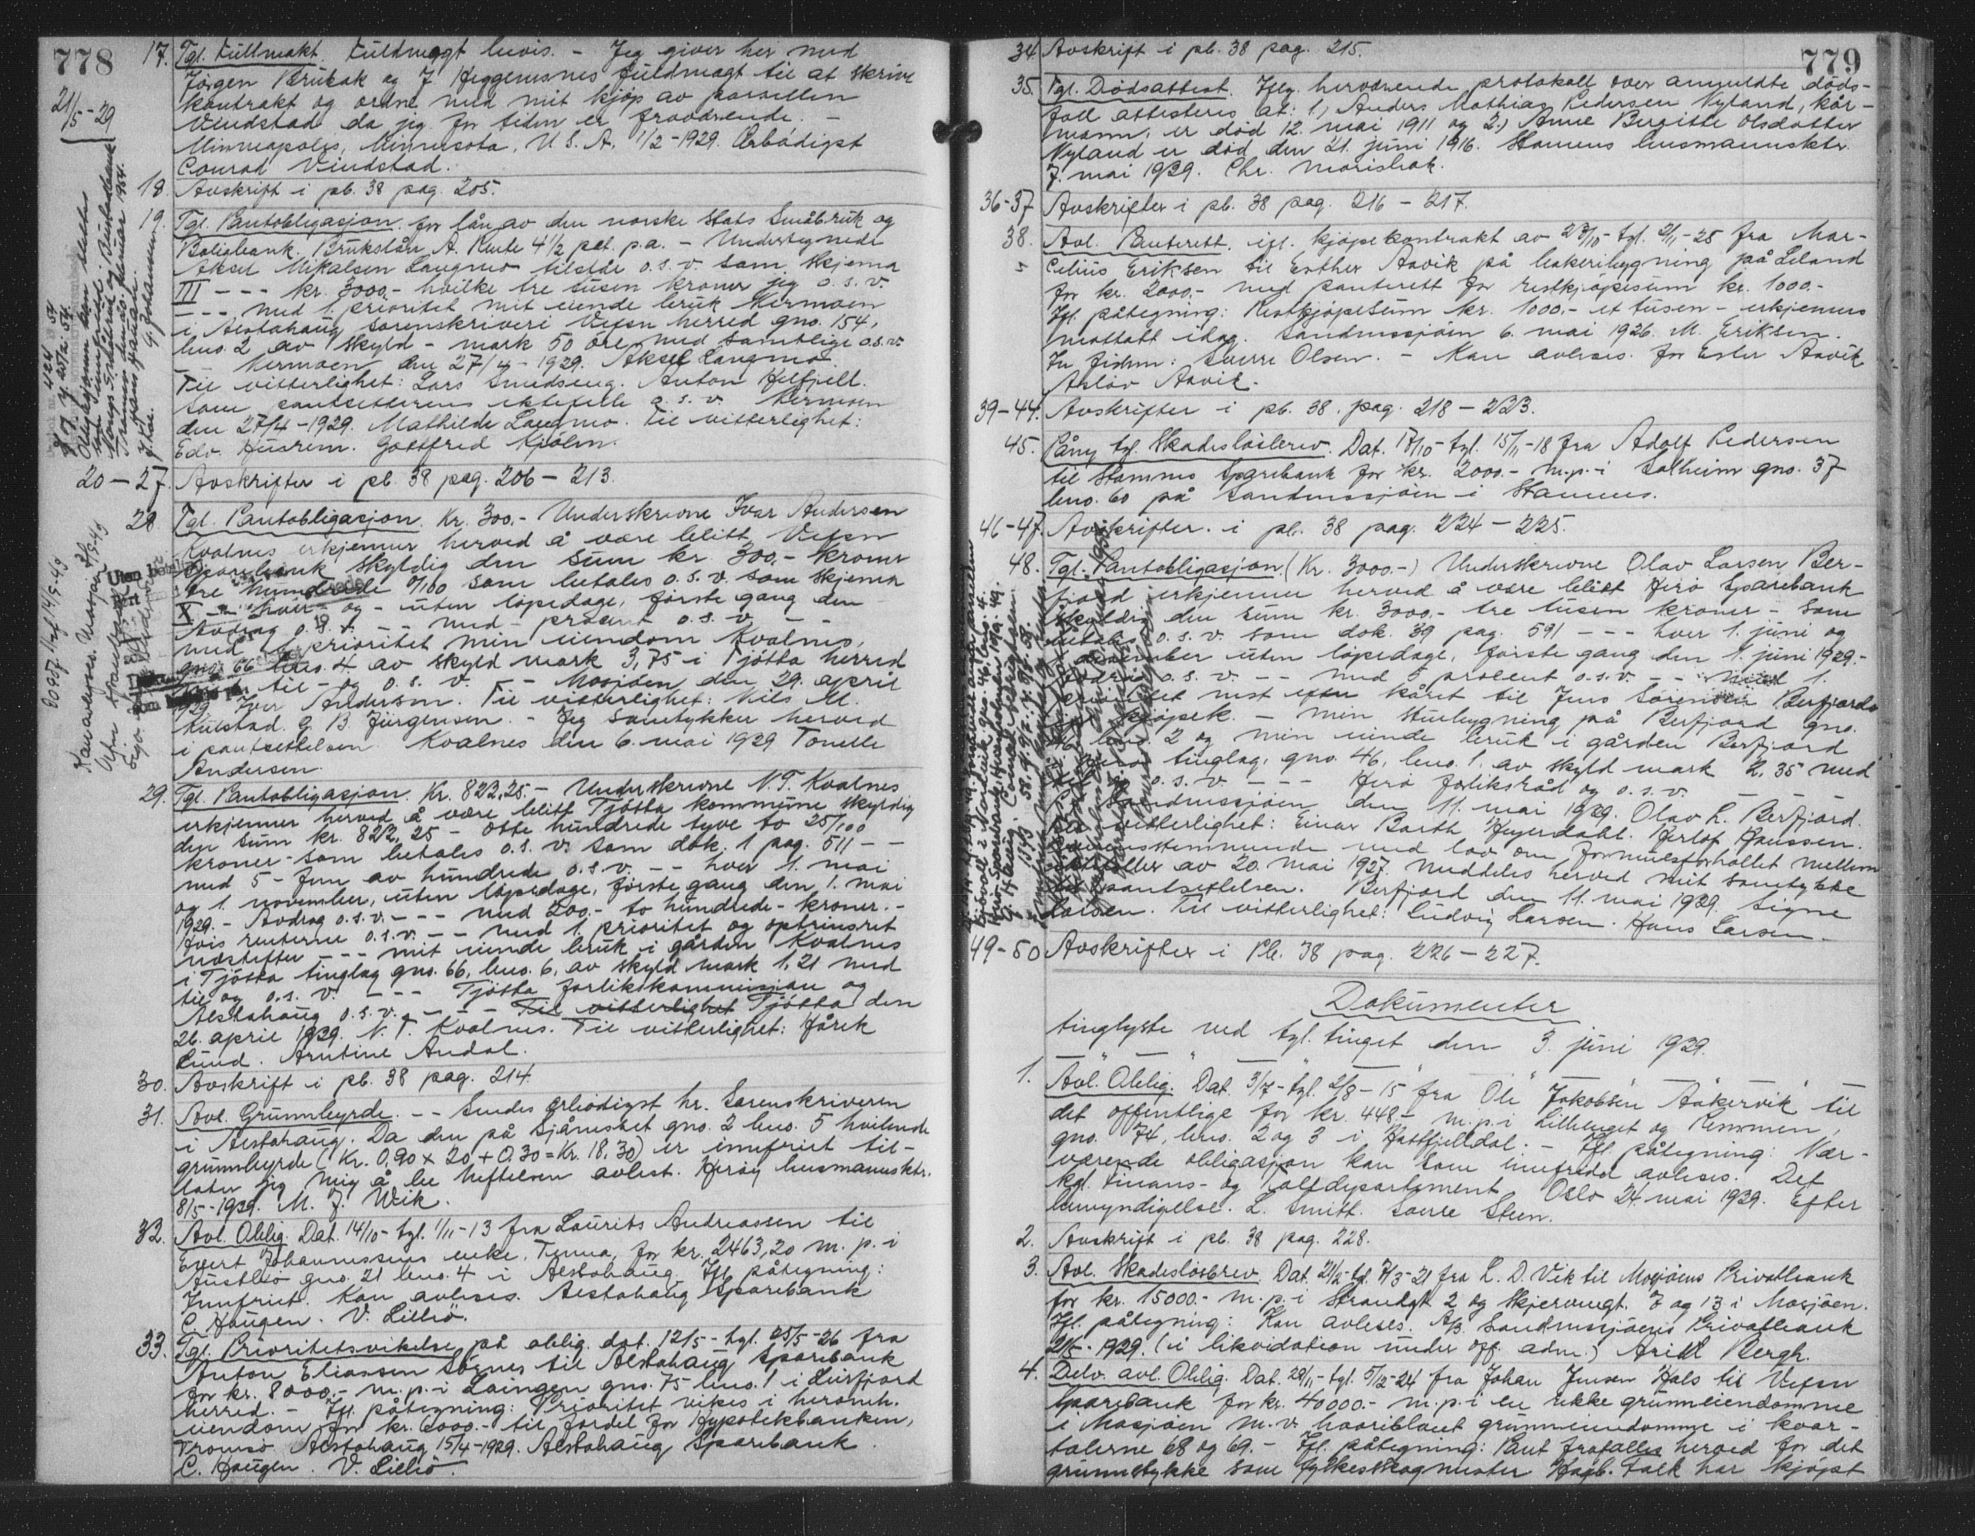 778
21/5-29
17. Tgl. Fullmakt. Fuldmagt bevis. - Jeg giver her med
Jørgen Brubak og J. Heggemsnes fuldmagt til at skrive
kontrakt og ordne med mit kjøp av parsellen
Vindstad da jeg for tiden er fraværende. -
Minneapolis, Minnesota, U.S.A. 1/2-1929. Ærbødigst
Conrad Vindstad.
18. Avskrift i pb. 38 pag. 205.
19. Tgl. Pantobligasjon for lån av den norske stats Småbruk og
Boligbank. Brukslån A. Rente 4 1/2 pct. p.a. - Undertegnede
Aksel Mikalsen Langmo tilstår o.s.v. som skjema
III --- kr. 3000,- hvilke tre tusen kroner jeg o.s.v.
--- med 1. prioritet mit eiende bruk Mermoen
i Alstahaug sorenskriveri Vefsn herred gno. 154,
bno. 2 av skyld - mark 50 øre med samtlige o.s.v.
-- Mermoen den 27/4-1929. Aksel Langmo.
Til vitterlighet: Lars Smedseng. Anton Kilfjell.
Som pantsetterens ektefelle o.s.v. Mermoen
den 27/4-1929. Mathilde Langmo. Til vitterlighet:
Edv. Husrem. Gottfred Mjølm.
20-27. Avskrifter i pb. 38 pag. 206-213.
28. Tgl. Pantobligasjon. Kr. 300,- Underskrevne Ivar Andersen
Kvalnes erkjenner herved å være blitt Vefsn
Sparebank skyldig den sum kr. 300,- kroner
tre hundrede 0/100 som betales o.s.v. som skjema
X -- hver - og - uten løpedage, første gang den
Avdrag o.s.v. -- med - procent o.s.v. --
med 1. prioritet min eiendom Kvalnes,
gno. 66 bno. 4 av skyld mark 3,75 i Tjøtta herred
til - og o.s.v. -- Mosjøen den 29. april
1929 Iver Andersen. Til vitterlighet: Nils M.
Kulstad. O. B Jürgensen. - Jeg samtykker herved
i pantsettelsen. Kvalnes den 6. mai 1929 Tonelle
Andersen.
29. Tgl. Pantobligasjon. Kr. 822,25 - Underskrevne N.T. Kvalnes
erkjenner herved å være blitt Tjøtta kommune skyldig
den sum kr. 822,25 - otte hundrede tyve to 25/100
kroner - som betales o.s.v. som dok. 1 pag. 511 --
med 5 - fem av hundrede o.s.v. -- hver 1. mai
og 1. november, uten løpedage, første gang den 1. mai
1929. - Avdrag o.s.v. --- med 200,- to hundrede - kroner. -
Hvis renterne o.s.v. -- med 1. prioritet og optrinsret
næstefter --- mit eiende bruk i gården Kvalnes
i Tjøtta tinglag gno. 66, bno. 6, av skyld mark 1,21 med
til og o.s.v. --- Tjøtta forlikskommission og
Alstahaug o.s.v. --- Til vitterlighet Tjøtta den
26. april 1929. N.T. Kvalnes. Til vitterlighet: Hårek
Lund. Arntine Andal.
30. Avskrift i pb. 38 pag. 214.
31. Avl. Grunnbyrde. -- Sendes ærbødigst hr. Sorenskriveren
i Alstahaug. Da den på Sjåneset gno. 2 bno. 5 hvilende
grunnbyrde (Kr. 0,90 x 20 + 0.30 = Kr. 18.30) er innfriet til-
later jeg mig å be heftelsen avlest. Herøy lensmannsktr.
8/5-1929. M. J. Wik.
32. Avl. Oblig. Dat. 14/10- tgl. 1/11-13 fra Laurits Andreassen til
Evert Johannessens enke, Tenna, for kr. 2463,20 m.p. i
Austbø gno. 21 bno. 4 i Alstahaug. Ifl. påtegning:
Innfriet. Kan avleses. Alstahaug Sparebank
C. Haugen. V. Lilliö.
33. Tgl. Prioritetsvikelse på oblig. dat. 12/5- tgl. 25/5-26 fra
Anton Eliassen Sognes til Alstahaug Sparebank
for kr. 8000,- m.p. i Laingen gno. 75 bno. 1 i Leirfjord
herred. - Ifl. påtegning: Prioritet vikes i herværh.
eiendom for kr. 6000,- til fordel for Hypotekbanken,
Tromsø. Alstahaug 15/4-1929. Alstahaug Sparebank
C. Haugen. V. Lillö.
779
34. Avskrift i pb. 38 pag. 215.
35. Tgl. Dødsattest. Iflg. herværende protokoll over anmeldte døds-
fall attesteres at: 1) Anders Mathias Pedersen Nyland, kår-
mann, er død 12. mai 1911 og 2.) Anne Bergitte Olsdatter
Nyland er død den 21. juni 1916. Stamnes lensmannsktr.
7. mai 1929. Chr. Marishak.
36-37 Avskrifter i pb. 38 pag. 216 - 217.
38. Avl. Panterett ifl. kjøpekontrakt av 28/10- tgl. 2/11-25 fra Mar-
celius Eriksen til Enthes Aavik på bakeribygning på Leland
for kr. 2000,- med panterett for restkjøpesum kr. 1000.-
Ifl. påtegning: Restkjøpesum kr. 1000,- et tusen - erkjennes
mottatt idag. Sandnessjøen 6. mai 1926. M. Eriksen.
In fidem: Sverre Olsen. - Kan avleses. for Ester Aavik
Asløv Aavik.
39-44. Avskrifter i pb. 38. pag. 218-223.
45. Påny tgl. Skadesløsbrev. Dat. 17/10- tgl. 15/11-18 fra Adolf Pedersen
til Stamnes Sparebank for kr. 2000,- m.p. i Solheim gno. 37
bno. 60 på Sandnessjøen i Stamnes.
46-47. Avskrifter. i pb. 38 pag. 224 - 225.
48. Tgl. Pantobligasjon (Kr. 3000.-) Underskrevne Olav Larsen Ber-
fjord erkjenner herved å være blitt Herø Sparebank
skyldig den sum kr. 3000,- tre tusen kroner - som
betales o.s.v. som dok. 39 pag. 591 --- hver 1. juni og
desember uten løpedage, første gang den 1. juni 1929.-
o.s.v. -- med 5 procent o.s.v. -- med 1.
prioritet nest efter kåret til Jens Sørensen Berfjords
- min stuebygning på Berfjord gno.
46, bno. 2 og min eiende bruk i gården Berfjord
tinglag, gno. 46, bno. 1 av skyld mark 2,35 med
o.s.v. --- Herø forliksråd og o.s.v. -
Sandnessjøen den 11. mai 1929. Olav L. Berfjord.
Til vitterlighet: Einar Barth Heyerdahl. Herlof Hanssen.
overensstemmende med lov om formuesforholdet mellem
ektefeller av 20. mai 1927 meddeles herved mit samtykke
til pantsettelsen. Berfjord den 11. mai 1929. Signe
Larsen. Til vitterlighet: Ludvig Larsen. Hans Larsen.
49-50 Avskrifter i Pb. 38 pag. 226-227.
Dokumenter
tinglyste ved tgl. tinget den 3. juni 1929.
1. Avl. Oblig. Dat. 3/7- tgl. 2/8-15 fra Ole Jakobsen Aakervik til
det offentlige for kr. 448,- m.p. i Lilleenget og Remmen,
gno. 74, bno. 2 og 3 i Hattfjelldal. - Ifl. påtegning: Nær-
værende obligasjon kan som innfridd avleses. Det
kgl. Finans- og Tolldepartement Oslo 24. mai 1929. Efter
bemyndigelse. L. Smith. Sverre Steen.
2. Avskrift i pb. 38 pag. 228.
3. Avl. Skadesløsbrev. Dat. 21/2- tgl. 7/3-21 fra L. D. Vik til Mosjøens Privatbank
for kr. 15000.- m.p. i Strandgt 2 og Skjervengt. 7 og 13 i Mosjøen.
Ifl. påtegning: Kan avleses. A/S Sandnessjøens Privatbank
21/5-1929. (i likvidation under off. adm.) Arild Bergh.
4. Delv. avl. Oblig. Dat. 28/11- tgl. 5/12-24 fra Johan Jensen Hals til Vefsn
Sparebank for kr. 40000.- m.p. i en rekke grunneiendomme
i Mosjøen m.v. hvoriblant grunneiendomme i kvar-
talerne 68 og 69. - Ifl. påtegning: Pant frafalles herved for det
grunnstykke som fylkesskogmester Hagb. Falk har kjøpt